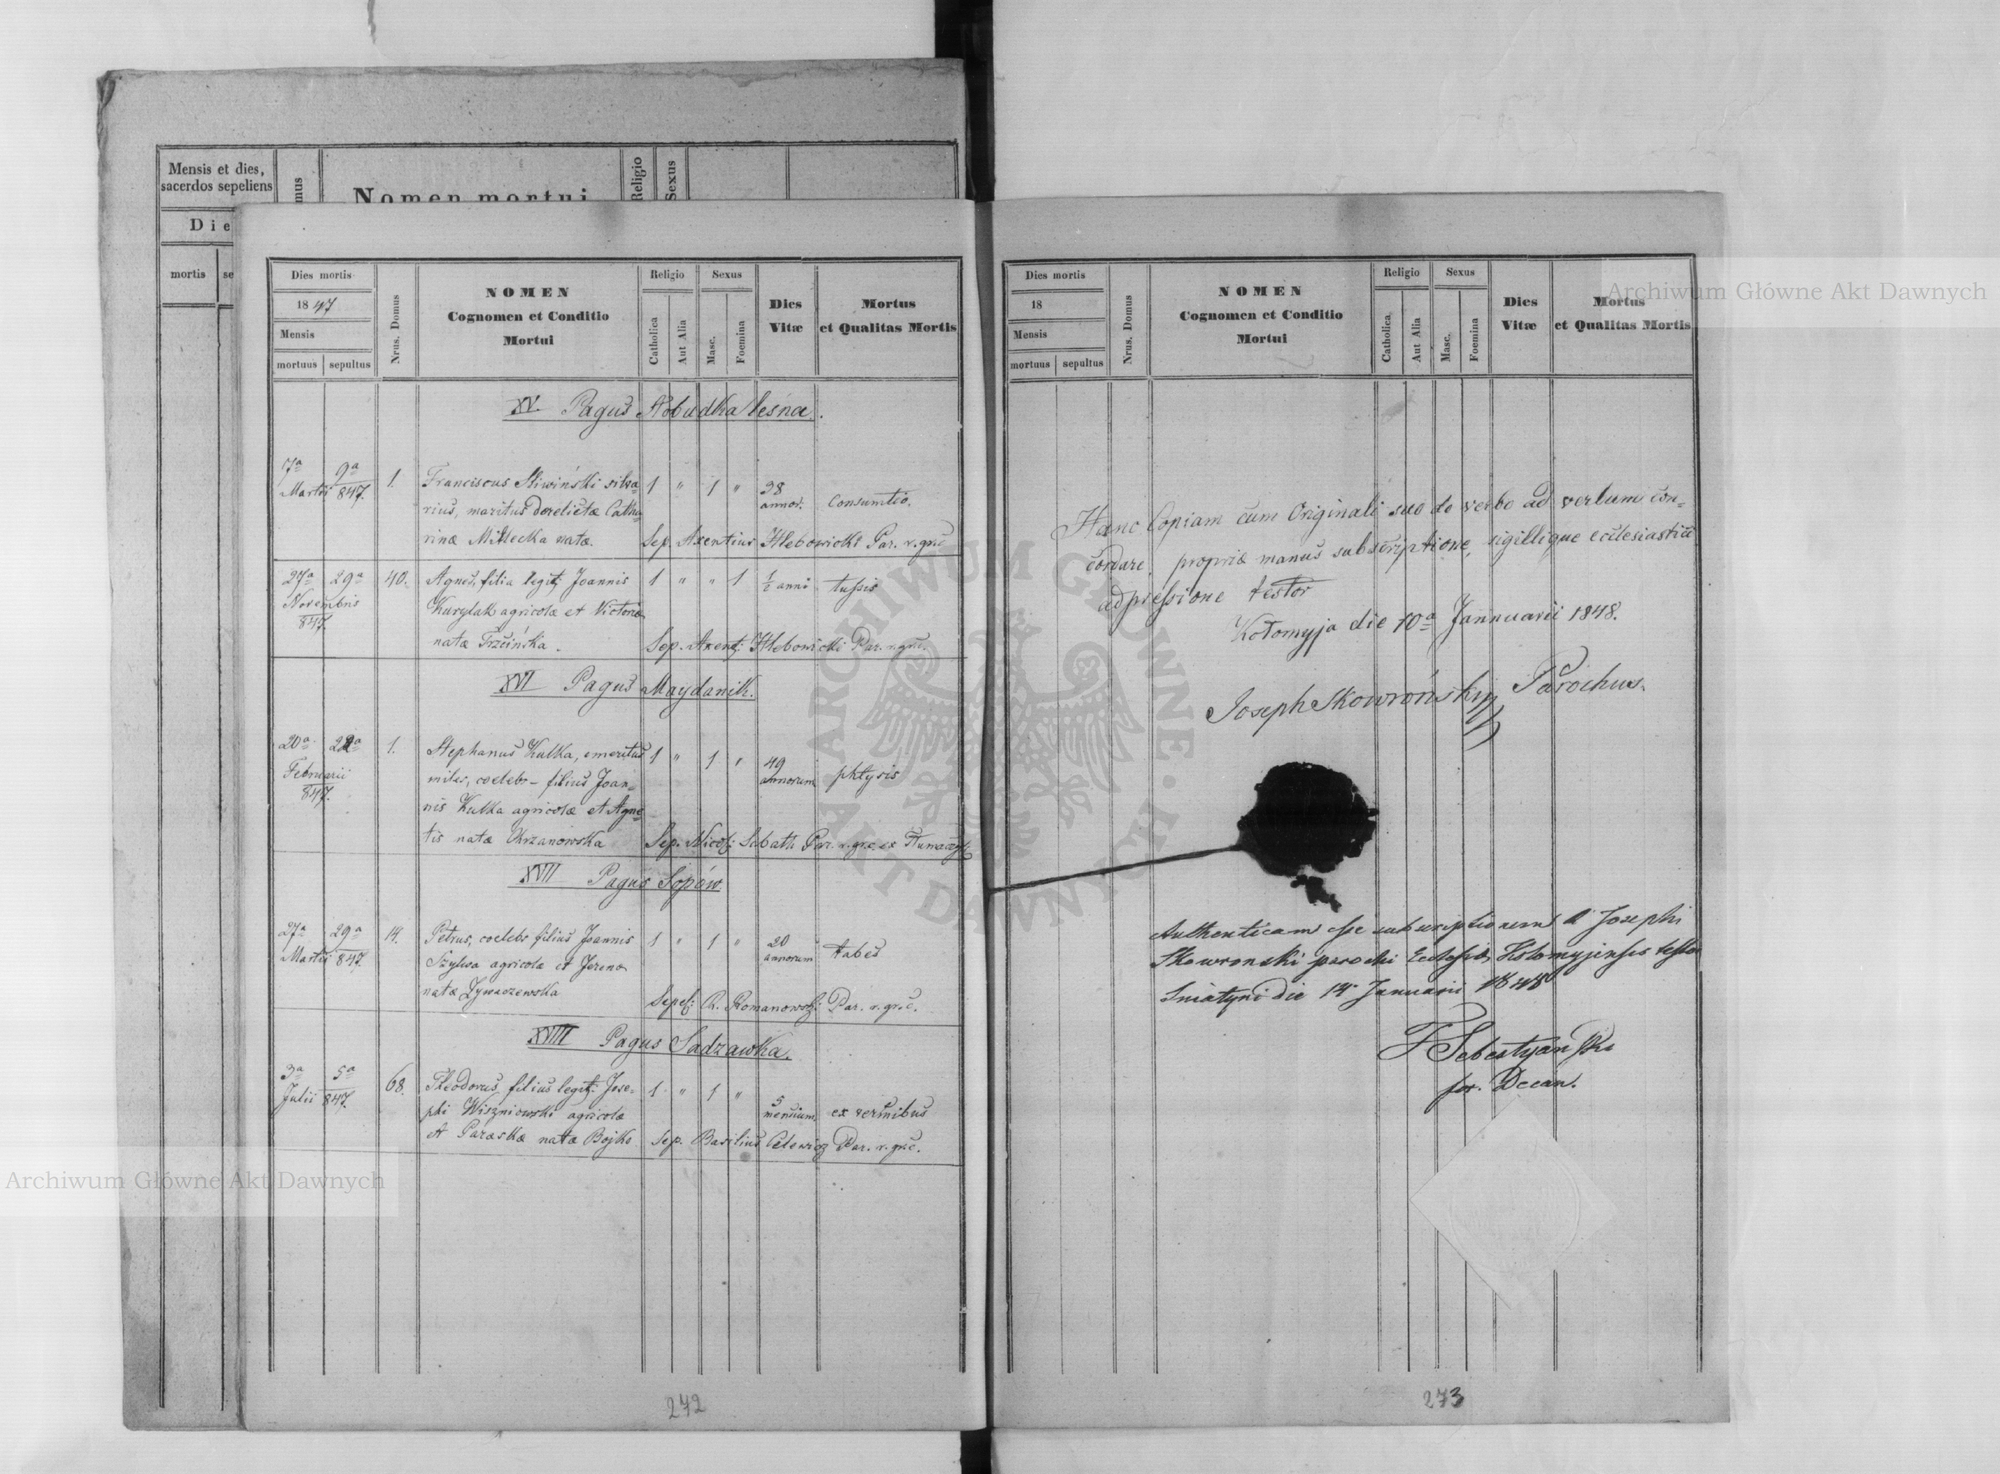 Mensis et dies,
sacerdos sepeliens
mus
Nomen mortui
Religio
Sexus
Die
mortis
se
Dies mortis
1847
Mensis
mortuus sepultus
Nrus. Domus
NOMEN
Cognomen et Conditio
Mortui
Religio
Catholica
Aut Alia
Sexus
Masc.
Foemina
Dies
Vitæ
Mortus
et Qualitas Mortis
XV. Pagus Słobudka leśna.
7a 9a
Martii 847.
1.
Franciscus Śliwiński silva-
rius, maritus derelictæ Catha-
rinæ Millecka natæ.
1 " 1 "
38
annor.
consumtio.
Sep. Axentius Hlebowicki Par. r. gr. c
27a 29a
Novembris
847.
40.
Agnes, filia legit: Joannis
Kurylak agricolæ et Victoriæ
natæ Trzcińska.
1 " " 1
1/2 anni
tussis
Sep. Axent: Hlebowicki Par. r. gr. c.
XVI Pagus Maydanik.
20a 22a
Februarii
847.
1.
Stephanus Kulka, emeritus
miles, coelebs - filius Joan-
nis Kulka agricolæ et Agne-
tis natæ Chrzanowska
1 " 1 "
49
annorum
phtysis
Sep. Nicol: Sabath Par. r. gr. c. ex Tłumaczyk
XVII Pagus Sopów
27a 29a
Martii 847.
14.
Petrus, coelebs filius Joannis
Szylwa agricolæ et Jereno
natæ Zywaczewska
1 " 1 "
20
annorum
tabes
Sepel: R. Romanowski Par. r. gr. c.
XVIII Pagus Sadzawka.
3a 5a
Julii 847.
68.
Theodorus, filius legit: Jose-
phi Wiszniowski agricolæ
et Paraskæ natæ Bojko
1 " 1 "
5
mensium
ex vermibus
Sep. Basilius Celewicz Par. r. gr. c.
272
Dies mortis
18
Mensis
mortuus sepultus
Nrus. Domus
NOMEN
Cognomen et Conditio
Mortui
Religio
Catholica
Aut Alia
Sexus
Masc.
Foemina
Dies
Vitæ
Mortus
et Qualitas Mortis
Hanc Copiam cum Originali suo de verbo ad verbum con-
cordare, propriæ manus subscriptione, sigillique ecclesiastici
adpressione testor
Kołomyja die 10a Jannuarii 1848.
Joseph Skowrońskyj Parochus.
Authenticam esse subscriptionem A Josephi
Skowronski parochi Ecclesiæ Kolomyjensis testor
Sniatyni die 14 Januarii 1848
F Sebestyański
for. Decan.
273
Archiwum Główne Akt Dawnych
Archiwum Główne Akt Dawnych
ARCHIWUM GŁÓWNE AKT DAWNYCH